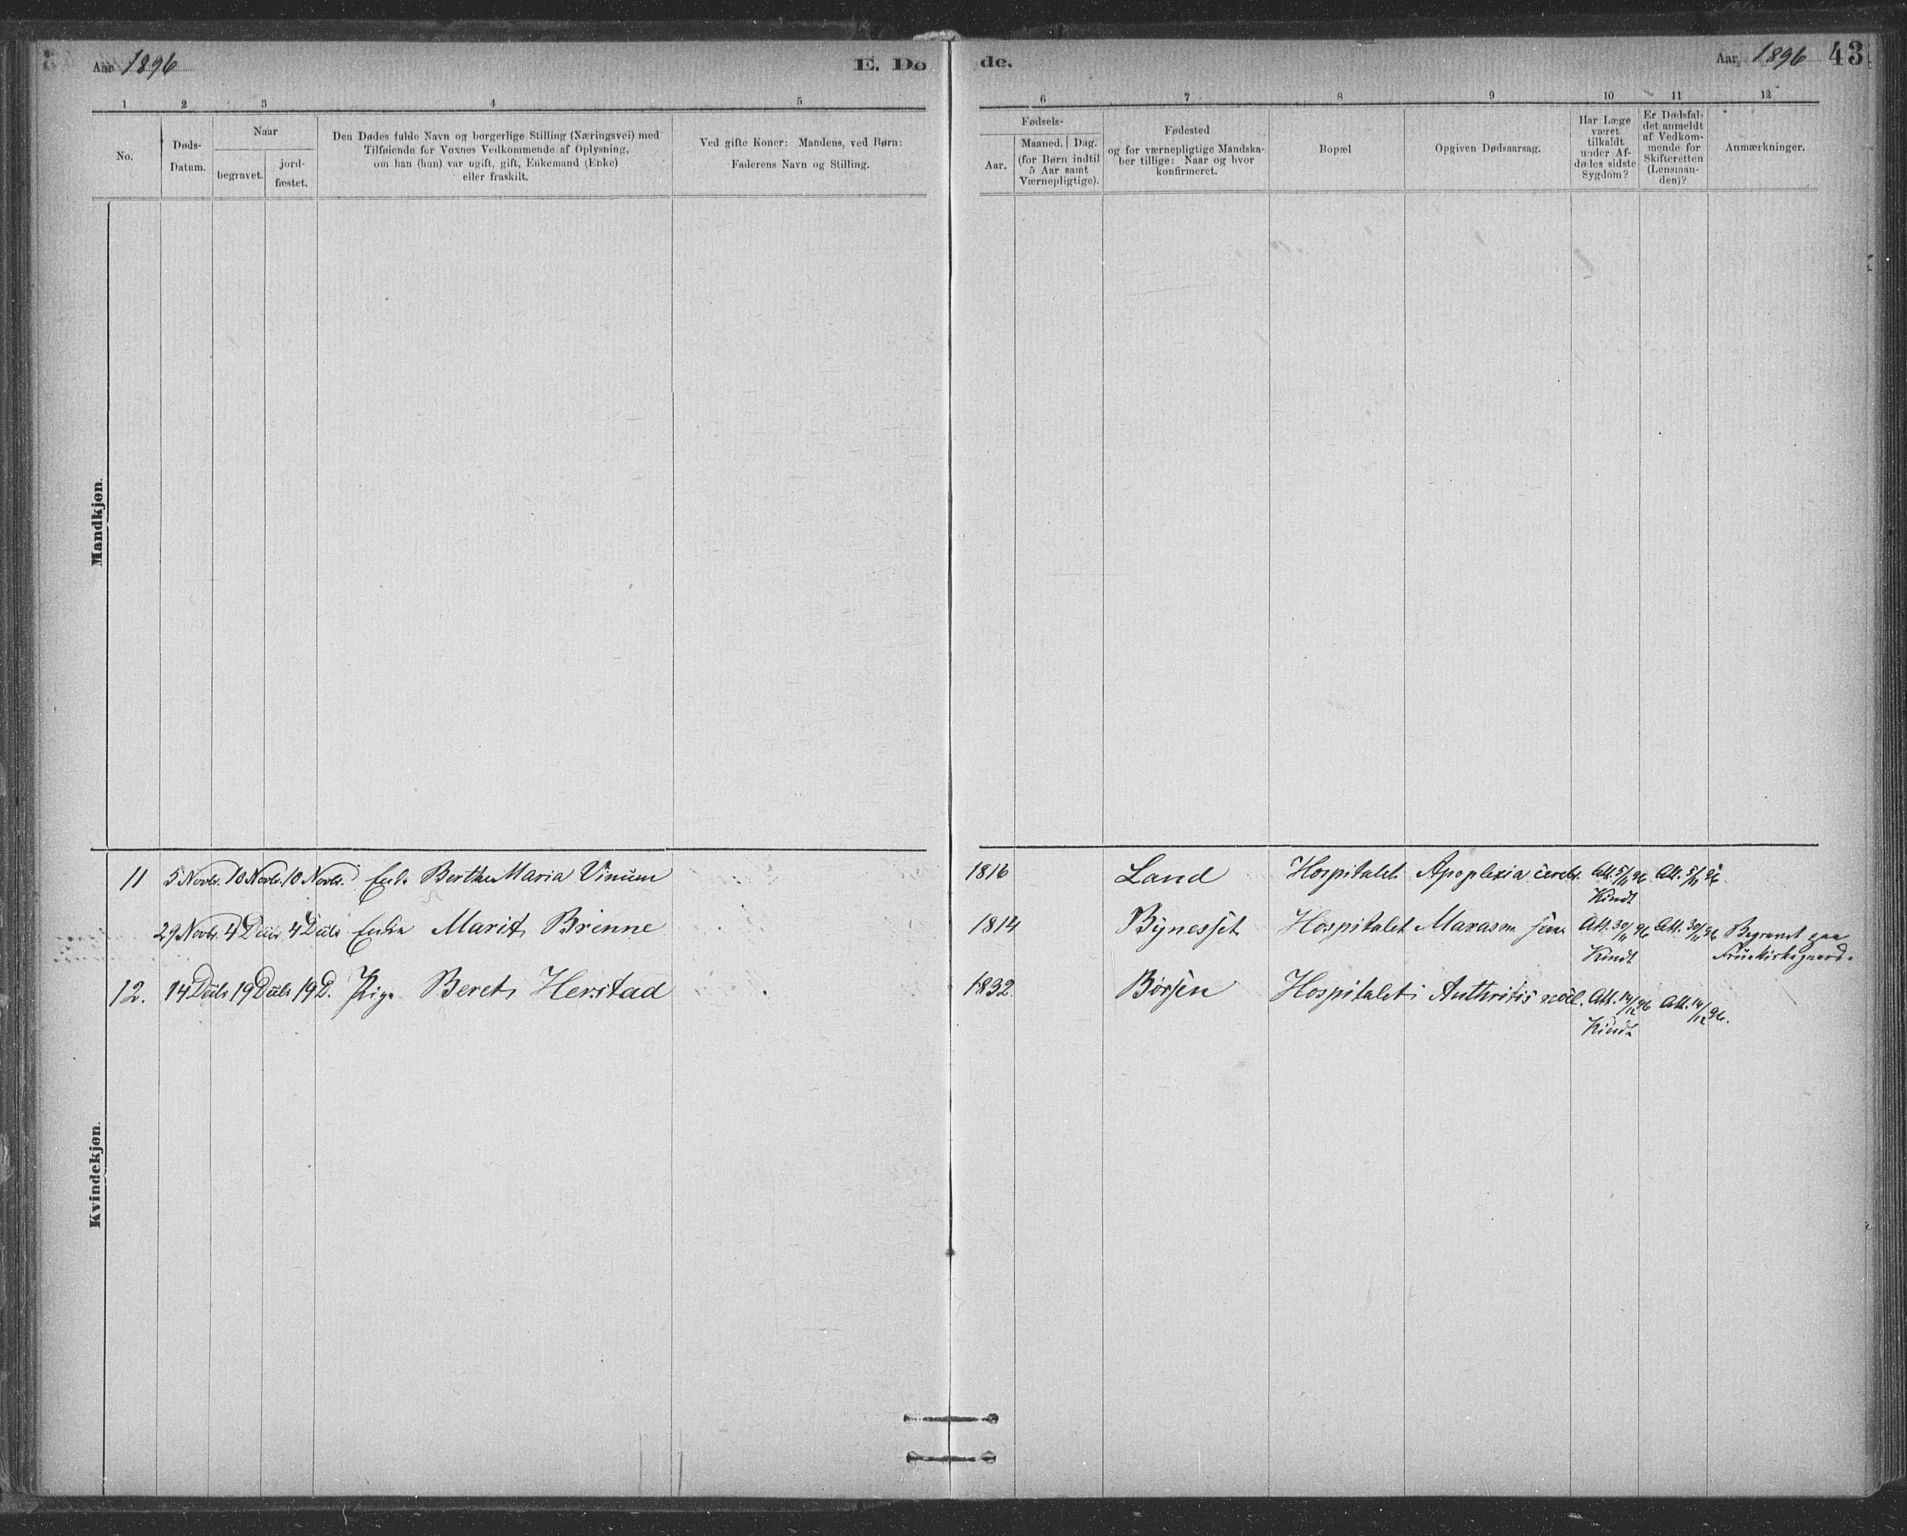 Aar 1896 E. Dø de. Aar 1896 43
1 2 3 4 5 6 7 8 9 10 11 12
No.
Døds-
Datum.
Naar
begravet.
jord-
fæstet.
Den Dødes fulde Navn og borgerlige Stilling (Næringsvei) med
Tilføiende for Voxnes Vedkommende af Oplysning,
om han (hun) var ugift, gift, Enkemand (Enke)
eller fraskilt.
Ved gifte Koner: Mandens, ved Børn:
Faderens Navn og Stilling.
Fødsels-
Aar.
Maaned. Dag.
(for Børn indtil
5 Aar samt
Værnepligtige).
Fødested
og for værnepligtige Mandska-
ber tillige: Naar og hvor
konfirmeret.
Bopæl
Opgiven Dødsaarsag.
Har Læge
været
tilkaldt
under Af-
dødes sidste
Sygdom?
Er Dødsfal-
det anmeldt
af Vedkom-
mende for
Skifteretten
(Lensman-
den)?
Anmærkninger.
Mandkjøn.
Kvindekjøn.
11 5 Novbr. 10 Novbr. 10 Novbr. Enke Berthe Maria Vinum 1816 Land Hospitalet Apoplexia cerebr. Att. 5/11 96 Att. 5/11 96
Kindt
29 Novbr. 4 Decbr 4 Decbr Enke Marit Brenne 1814 Bynesset Hospitalet Marasm sen Att. 30/11 96 Att. 30/11 96 Begravet paa
Kindt Fruekirkegaard.
12. 14 Decbr 19 Decbr 19 D. Pige Beret Herstad 1832. Børsen Hospitalet Arthritis Att. 14/12 96 Att. 14/12 96.
Kindt